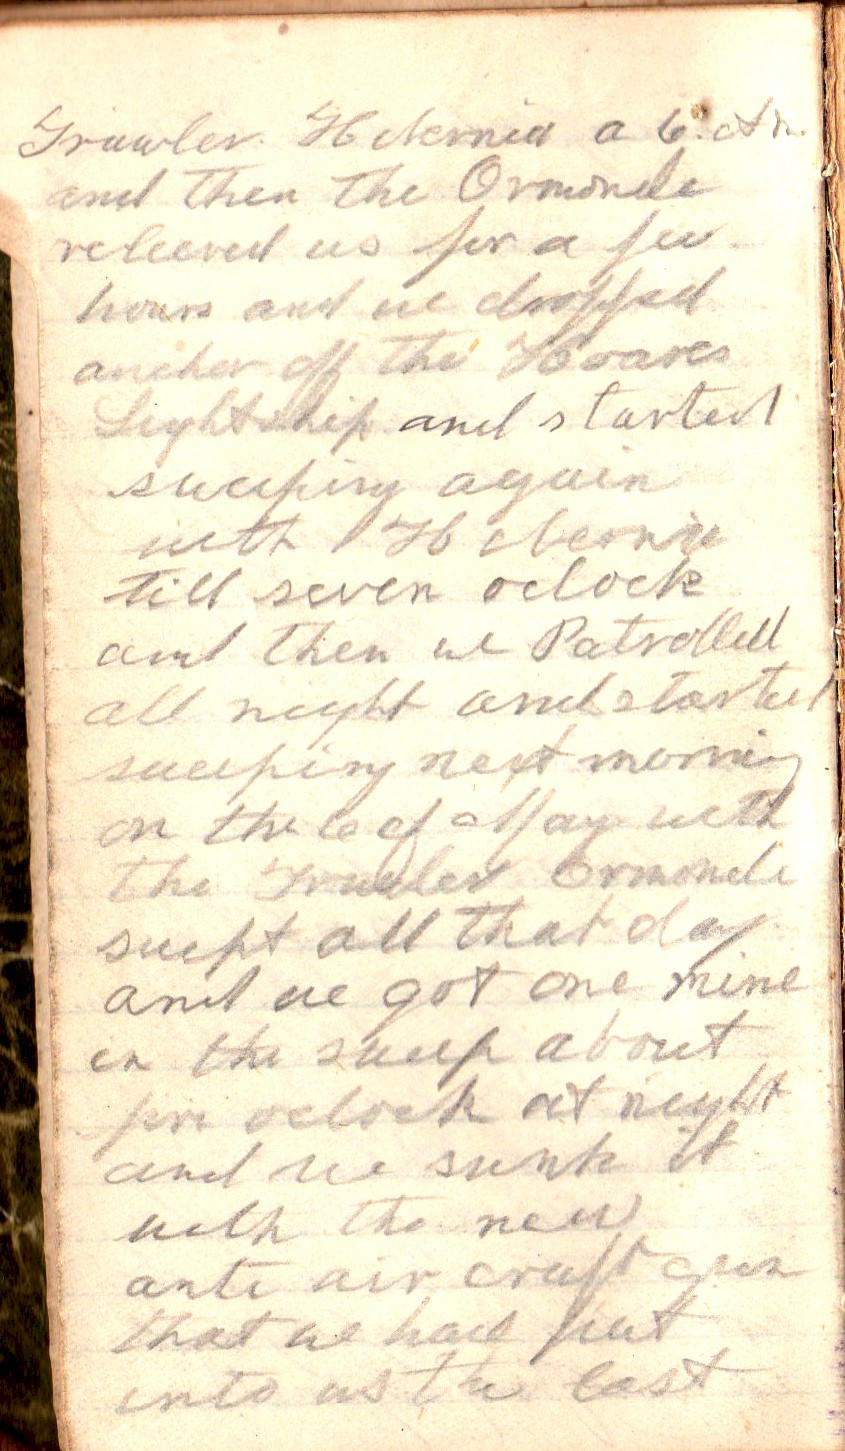 Trawler Hibernia a 6. Am
and then the Ormonde
releeved us for a few
hours and we dropped
ancher off the
Lightship and started
sweeping again
with Hibernia
till seven oclock
and then we Patrolled
all night and started
sweeping next morning
on the 6 of May with
the Trawler Ormonde
swept all that day
and we got one mine
in the sweep about
oclock at night
and we sunk it
with the new
anti air craft gun
that we had put
into us the last